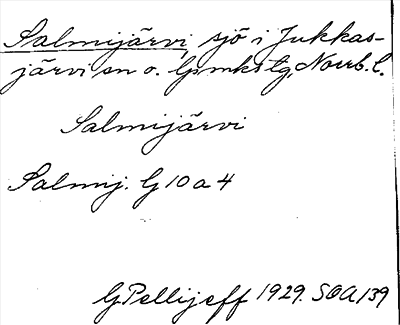 Salmijärvi, sjö i Jukkas-
järvi sn o. lpmkstg, Norrb. l.
Salmijärvi
Salmij. G 10 a 4
G Pellijeff 1929. SOA 139